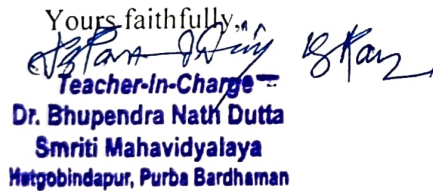 Yours faithfully,
Teacher-In-Charge
Dr. Bhupendra Nath Dutta
Smriti Mahavidyalaya
Hatgobindapur, Purba Bardhaman